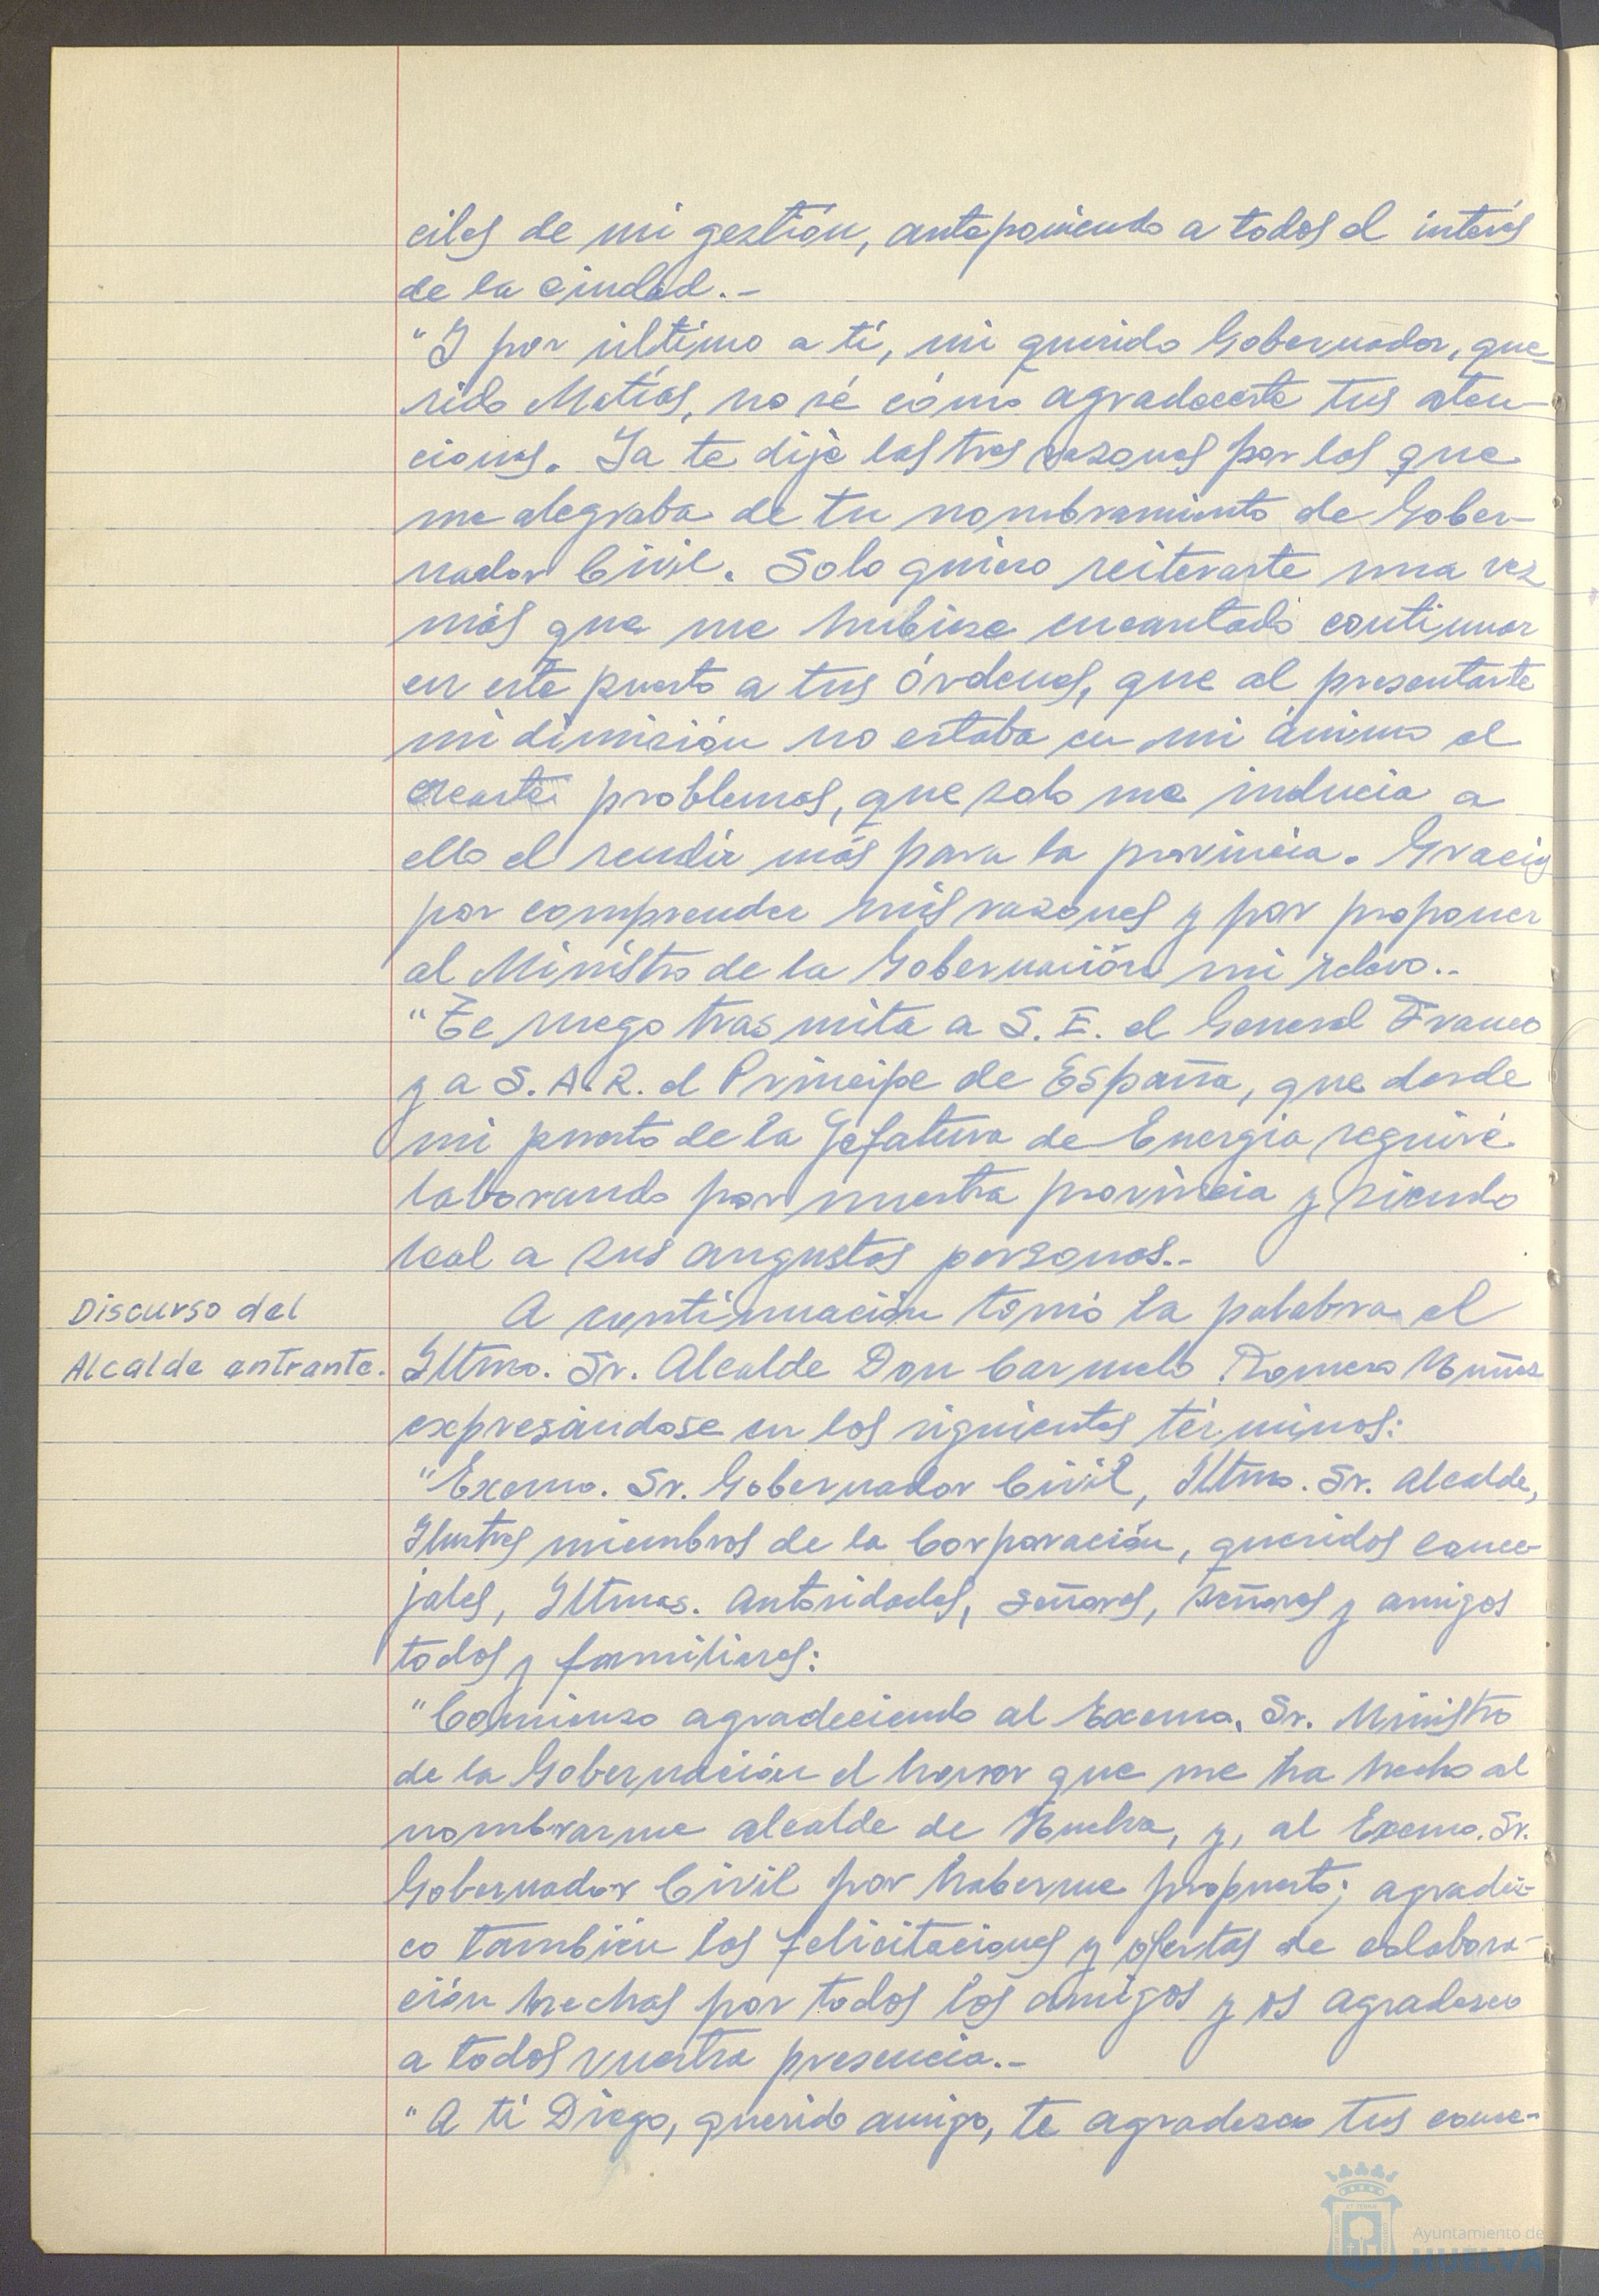 ciles de mi gestión, anteponiendo a todos el interés
de la ciudad.-
"Y por último a ti, mi querido Gobernador, que-
rido Matías, no sé cómo agradecerte tus aten-
ciones. Ya te dije las tres razones por las que
me alegraba de tu nombramiento de Gober-
nador Civil. Solo quiero reiterarte una vez
más que me hubiese encantado continuar
en este puesto a tus órdenes, que al presentarte
mi dimisión no estaba en mi ánimo el
crearte problemas, que solo me inducia a
ello el rendir más para la provincia. Gracias
por comprender mis razones y por proponer
al Ministro de la Gobernación mi relevo..-
"Te ruego trasmita a S. E. el General Franco
y a S. A. R. el Principe de España, que desde
mi puesto de la Jefatura de Energia seguiré
laborando por nuestra provincia y siendo
leal a sus augustas personas..-
Discurso del
Alcalde entrante.
A continuación tomó la palabra el
Iltmo. Sr. Alcalde Don Carmelo Romero Núñez
expresándose en los siguientes términos:
"Excmo. Sr. Gobernador Civil, Iltmo. Sr. Alcalde,
Ilustres miembros de la Corporación, queridos conce-
jales, Iltmas. Autoridades, señoras, señores y amigos
todos y familiares:
"Comienzo agradeciendo al Excmo. Sr. Ministro
de la Gobernación el honor que me ha hecho al
nombrarme alcalde de Huelva, y, al Excmo. Sr.
Gobernador Civil por haberme propuesto; agradez-
co también las felicitaciones y ofertas de colabora-
ción hechas por todos los amigos y os agradezco
a todos vuestra presencia.-
"A ti Diego, querido amigo, te agradezco tus conse-
Ayuntamiento de
HUELVA